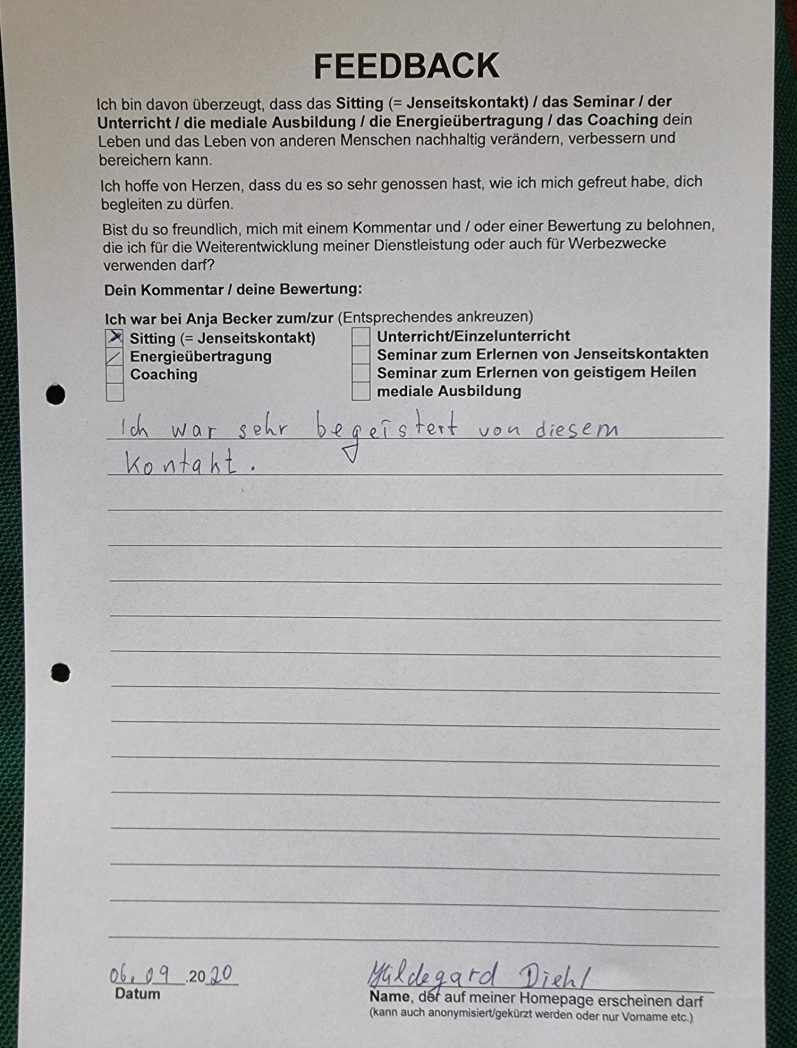 FEEDBACK
Ich bin davon überzeugt, dass das Sitting (= Jenseitskontakt) / das Seminar / der
Unterricht / die mediale Ausbildung / die Energieübertragung / das Coaching dein
Leben und das Leben von anderen Menschen nachhaltig verändern, verbessern und
bereichern kann.
Ich hoffe von Herzen, dass du es so sehr genossen hast, wie ich mich gefreut habe, dich
begleiten zu dürfen.
Bist du so freundlich, mich mit einem Kommentar und / oder einer Bewertung zu belohnen,
die ich für die Weiterentwicklung meiner Dienstleistung oder auch für Werbezwecke
verwenden darf?
Dein Kommentar / deine Bewertung:
Ich war bei Anja Becker zum/zur (Entsprechendes ankreuzen)
Sitting (= Jenseitskontakt)
Energieübertragung
Coaching
Unterricht/Einzelunterricht
Seminar zum Erlernen von Jenseitskontakten
Seminar zum Erlernen von geistigem Heilen
mediale Ausbildung
Ich war sehr begeistert von diesem
Kontakt.
06.09.2020
Datum
Hildegard Diehl
Name, der auf meiner Homepage erscheinen darf
(kann auch anonymisiert/gekürzt werden oder nur Vorname etc.)